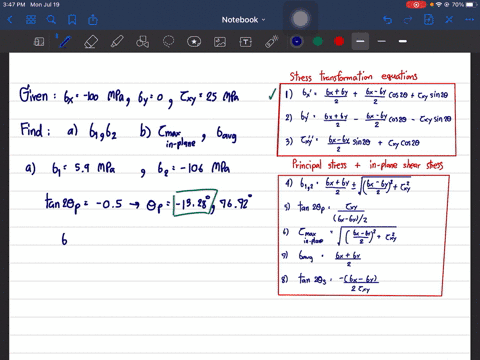 3:47 PM Mon Jul 19
70%
Notebook
Given: σx = -100 MPa, σy = 0, τxy = 25 MPa
Find: a) σ1, σ2 b) τmax in-plane, σavg
a) σ1 = 5.9 MPa, σ2 = -106 MPa
tan 2θp = -0.5 → θp = -13.28°, 76.72°
σ
Stress transformation equations
1) σx' = (σx + σy)/2 + (σx - σy)/2 cos2θ + τxy sin2θ
2) σy' = (σx + σy)/2 - (σx - σy)/2 cos2θ - τxy sin2θ
3) τx'y' = (σx - σy)/2 sin2θ + τxy cos2θ
Principal stress + in-plane shear stress
4) σ1,2 = (σx + σy)/2 ± √(((σx - σy)/2)² + τxy²)
5) tan 2θp = τxy/((σx - σy)/2)
6) τmax in-plane = √(((σx - σy)/2)² + τxy²)
7) σavg = (σx + σy)/2
8) tan 2θs = -(σx - σy)/(2τxy)